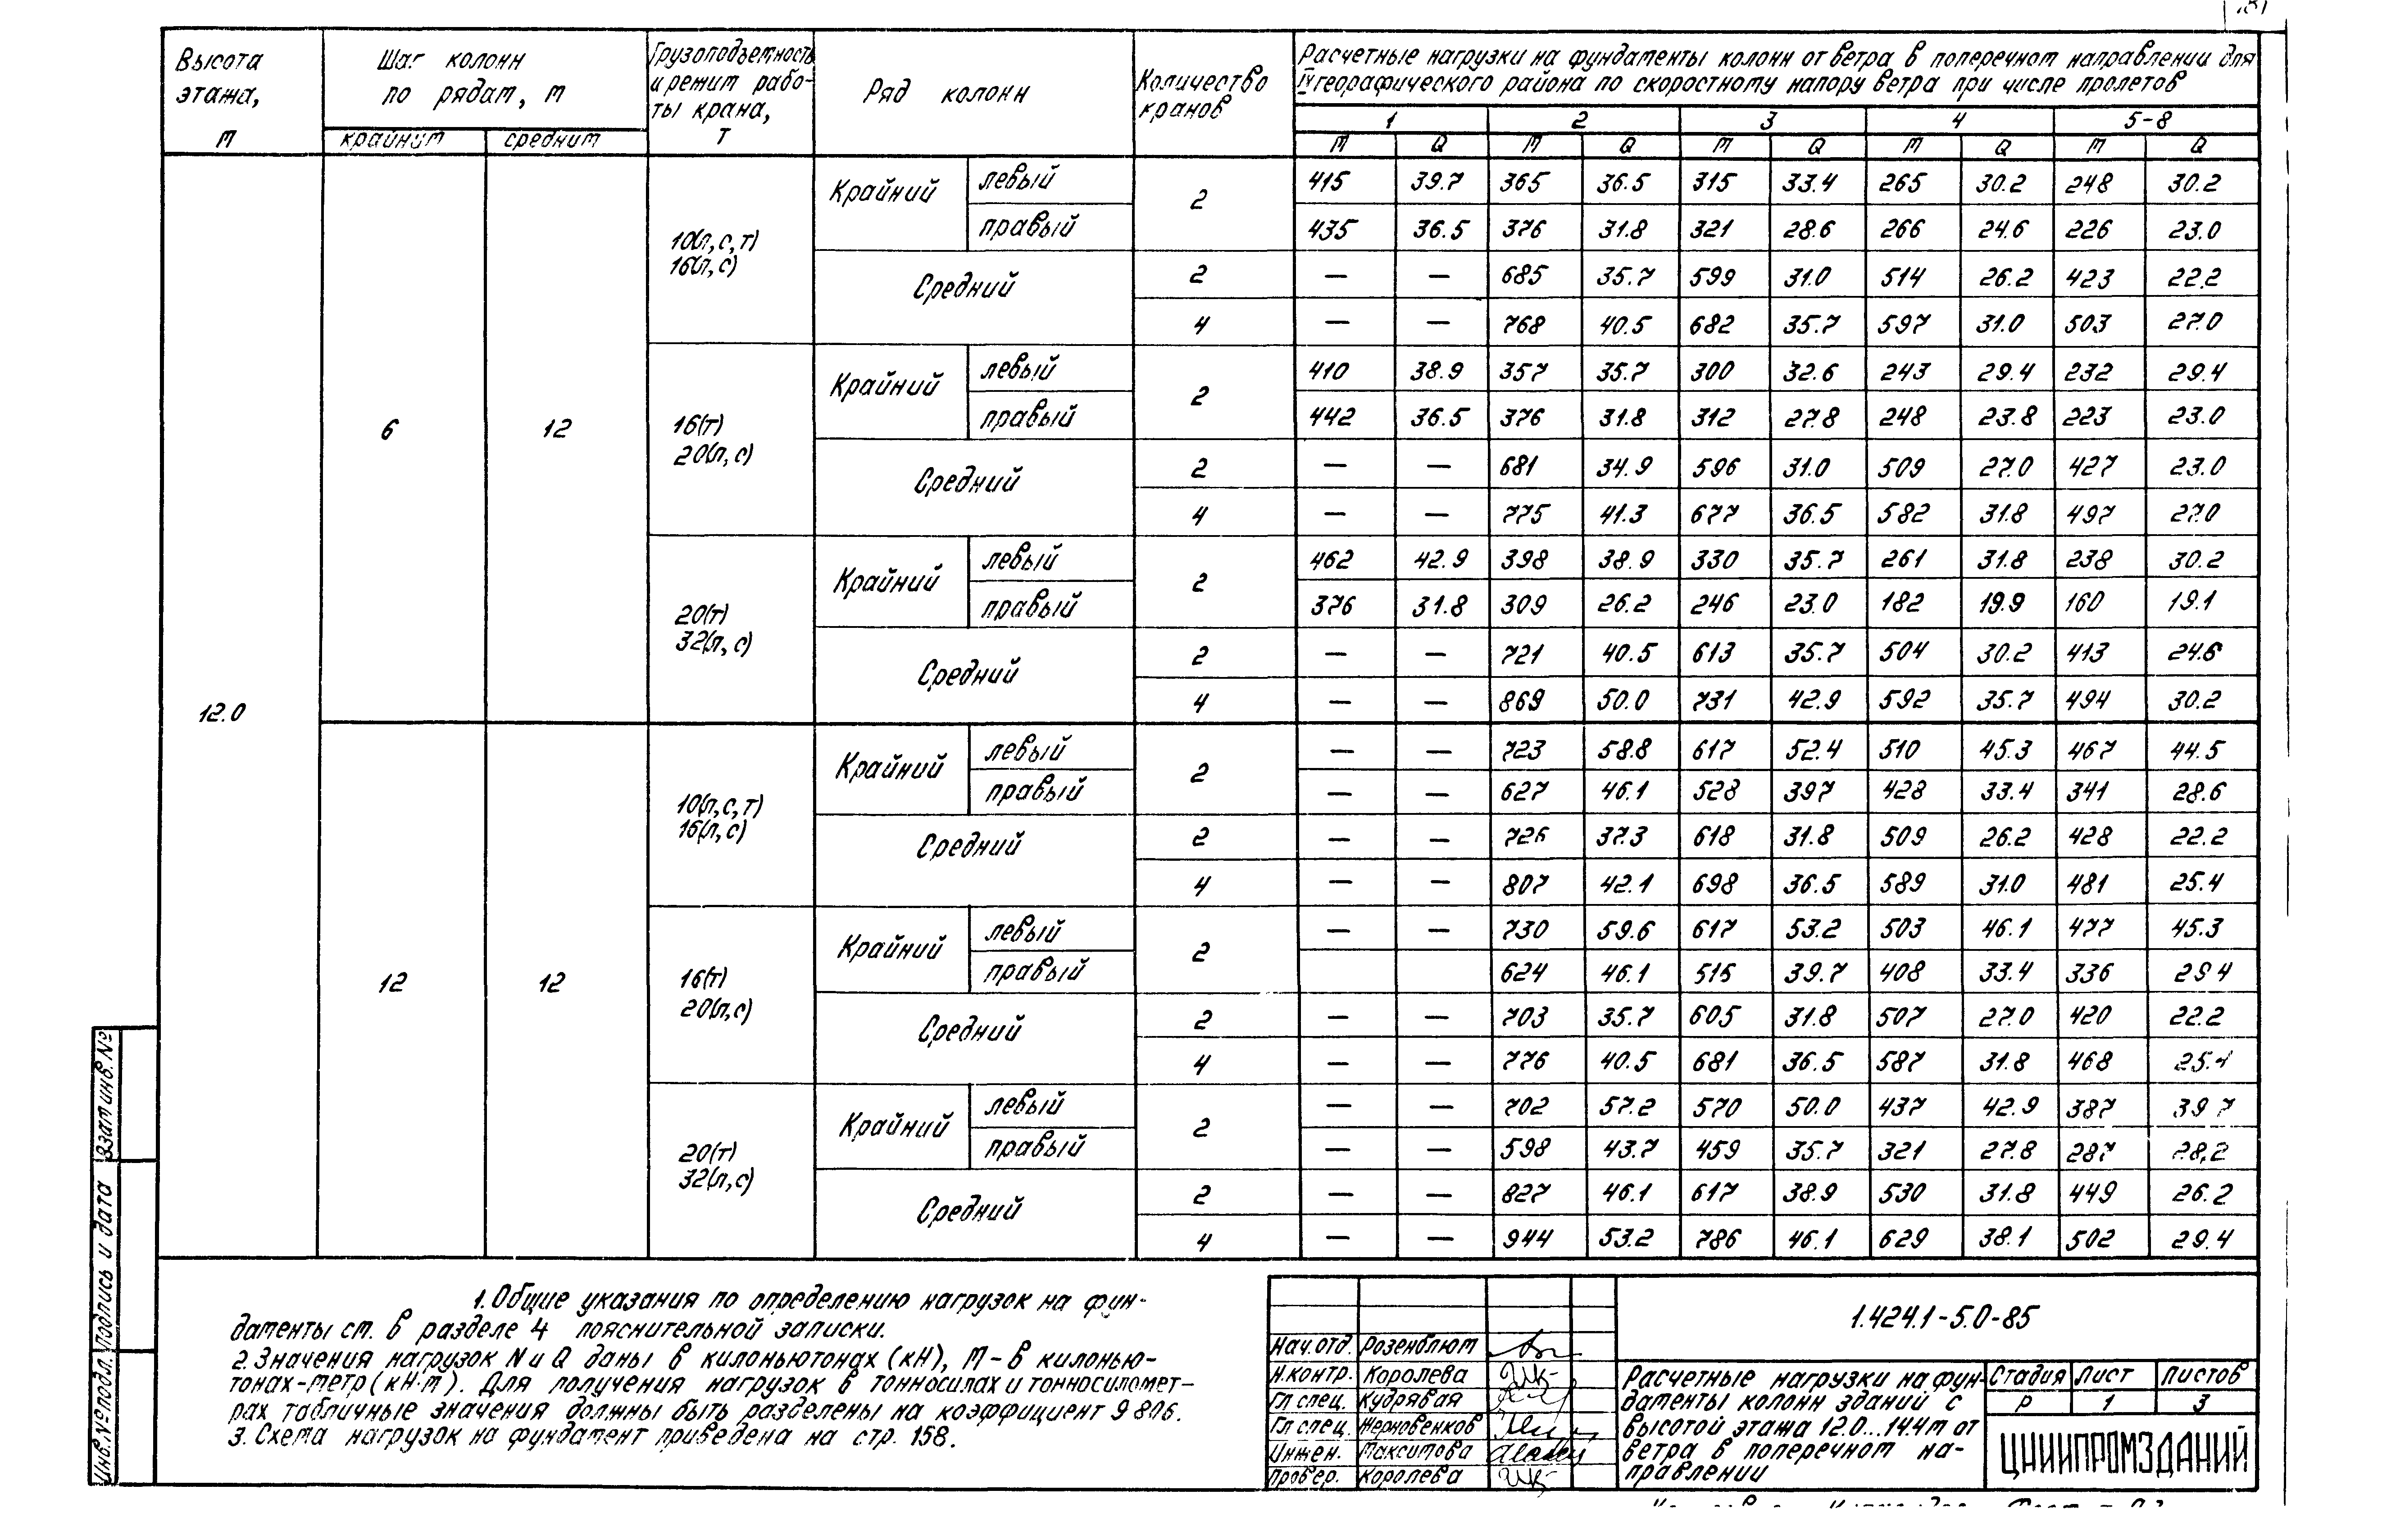 Высота этажа, м
Шаг колонн по рядам, м
крайним средним
Грузоподъемность и режим работы крана, т
Ряд колонн
Количество кранов
Расчетные нагрузки на фундаменты колонн от ветра в поперечном направлении для
IV географического района по скоростному напору ветра при числе пролетов
1 2 3 4 5-8
M Q M Q M Q M Q M Q
12.0
6 12
10(л,с,т)
16(л,с)
Крайний левый 2 415 39.7 365 36.5 315 33.4 265 30.2 248 30.2
правый 435 36.5 376 31.8 321 28.6 266 24.6 226 23.0
Средний 2 — — 685 35.7 599 31.0 514 26.2 423 22.2
4 — — 768 40.5 682 35.7 597 31.0 503 27.0
16(т)
20(л,с)
Крайний левый 2 410 38.9 357 35.7 300 32.6 243 29.4 232 29.4
правый 442 36.5 376 31.8 312 27.8 248 23.8 223 23.0
Средний 2 — — 681 34.9 596 31.0 509 27.0 427 23.0
4 — — 775 41.3 677 36.5 582 31.8 497 27.0
20(т)
32(л,с)
Крайний левый 2 462 42.9 398 38.9 330 35.7 261 31.8 238 30.2
правый 376 31.8 309 26.2 246 23.0 182 19.9 160 19.1
Средний 2 — — 721 40.5 613 35.7 504 30.2 413 24.6
4 — — 869 50.0 731 42.9 592 35.7 494 30.2
12 12
10(л,с,т)
16(л,с)
Крайний левый 2 — — 723 58.8 617 52.4 510 45.3 467 44.5
правый — — 627 46.1 528 397 428 33.4 341 28.6
Средний 2 — — 726 37.3 618 31.8 509 26.2 428 22.2
4 — — 807 42.1 698 36.5 589 31.0 481 25.4
16(т)
20(л,с)
Крайний левый 2 — — 730 59.6 617 53.2 503 46.1 477 45.3
правый 624 46.1 515 39.7 408 33.4 336 29 4
Средний 2 — — 703 35.7 605 31.8 507 27.0 420 22.2
4 — — 776 40.5 681 36.5 587 31.8 468 25.4
20(т)
32(л,с)
Крайний левый 2 — — 702 57.2 570 50.0 437 42.9 387 39 7
правый — — 598 43.7 459 35.7 321 27.8 287 28,2
Средний 2 — — 827 46.1 617 38.9 530 31.8 449 26.2
4 — — 944 53.2 786 46.1 629 38.1 502 29.4
1. Общие указания по определению нагрузок на фун-
даменты см. в разделе 4 пояснительной записки.
2. Значения нагрузок N и Q даны в килоньютонах (кН), М – в килонью-
тонах-метр (кН·м). Для получения нагрузок в тонносилах и тонносиломет-
рах табличные значения должны быть разделены на коэффициент 9 806.
3. Схема нагрузок на фундамент приведена на стр. 158.
Нач.отд. Розенблюм
Н.контр. Королева
Гл спец. Кудрявая
Гл спец. Жерновенков
Инжен. Максимова
Провер. Королева
1.424.1-5.0-85
Расчетные нагрузки на фун-
даменты колонн зданий с
высотой этажа 12.0...14.4м от
ветра в поперечном на-
правлении
Стадия Лист Листов
Р 1 3
ЦНИИПРОМЗДАНИЙ
Инв.№подл. Подпись и дата Взам инв.№